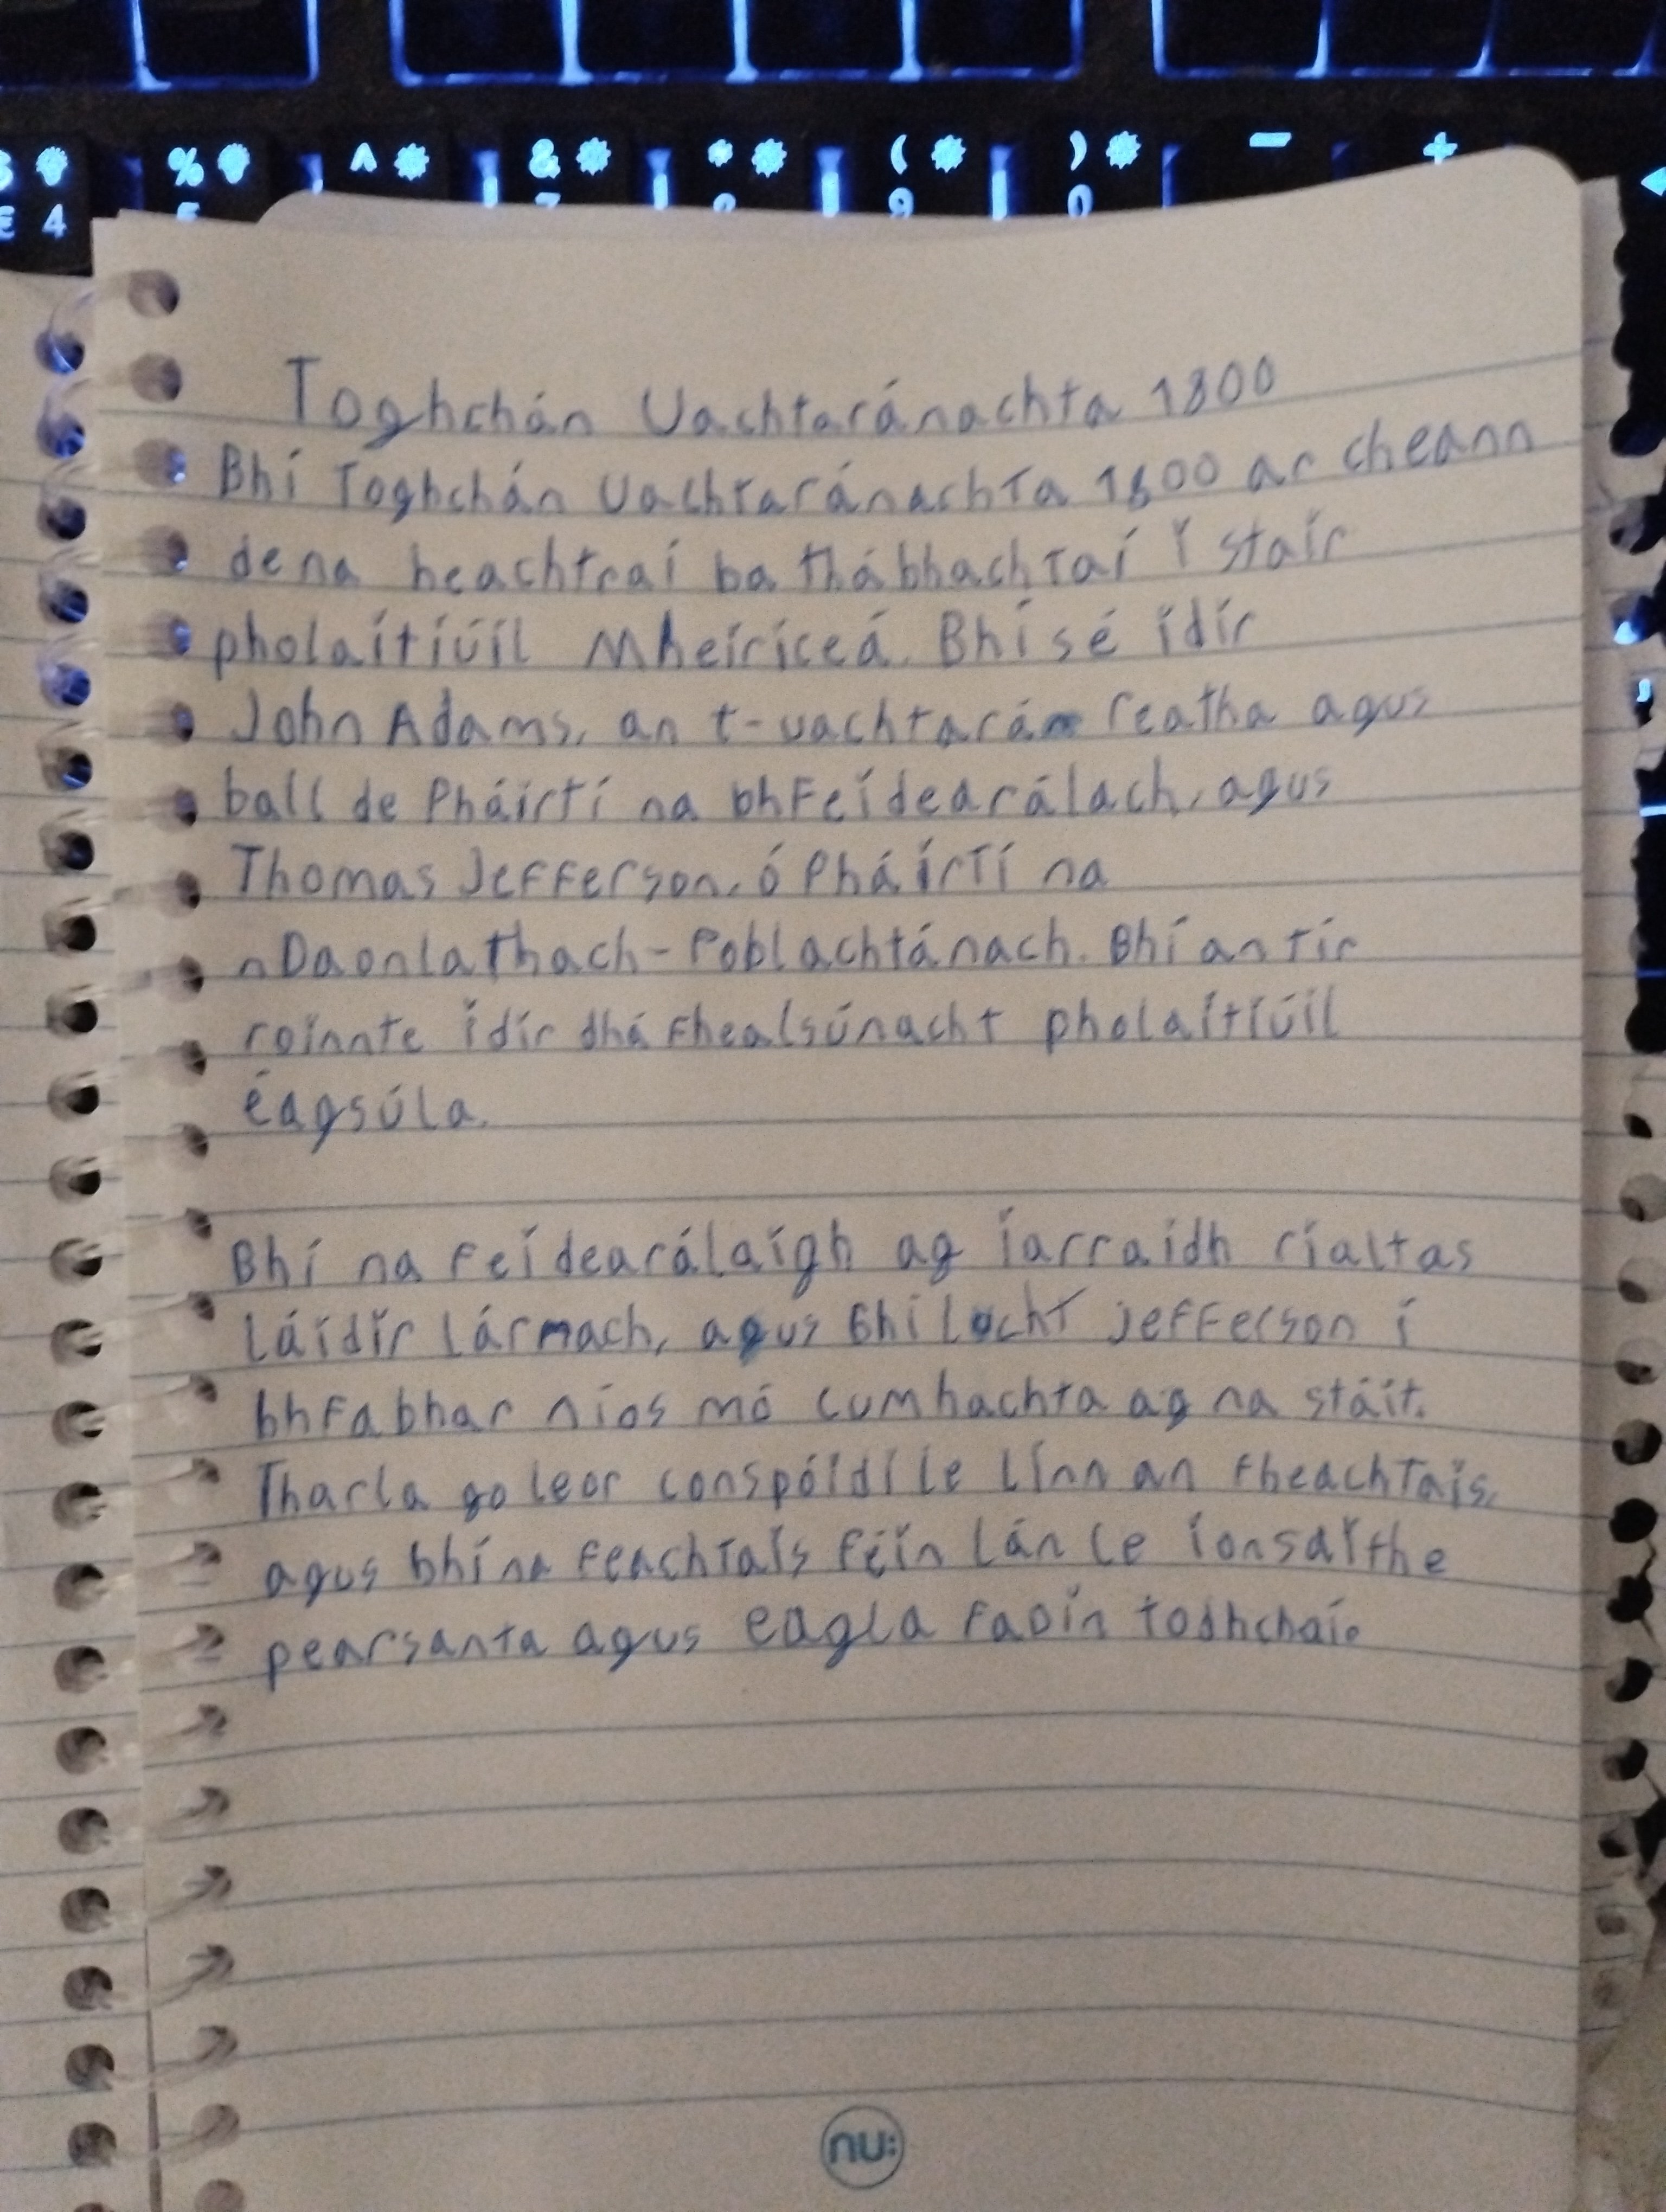 $ € 4
% 5
^
& 7
*
( 9
) 0
-
+
Toghchán Uachtaránachta 1800
Bhí Toghchán Uachtaránachta 1800 ar cheann
de na heachtraí ba thábhachtaí i stair
pholaitiúil Mheiriceá. Bhí sé idir
John Adams, an t-uachtarán reatha agus
ball de Pháirtí na bhFeidearálach, agus
Thomas Jefferson, ó Pháirtí na
nDaonlathach-Poblachtánach. Bhí an tír
roinnte idir dhá fhealsúnacht pholaitiúil
éagsúla.
Bhí na Feidearálaigh ag iarraidh rialtas
láidir lárnach, agus bhí lucht Jefferson i
bhfabhar níos mó cumhachta ag na stáit.
Tharla go leor conspóidí le linn an fheachtais,
agus bhí na feachtais féin lán le ionsaithe
pearsanta agus eagla faoin todhchaí.
nu: